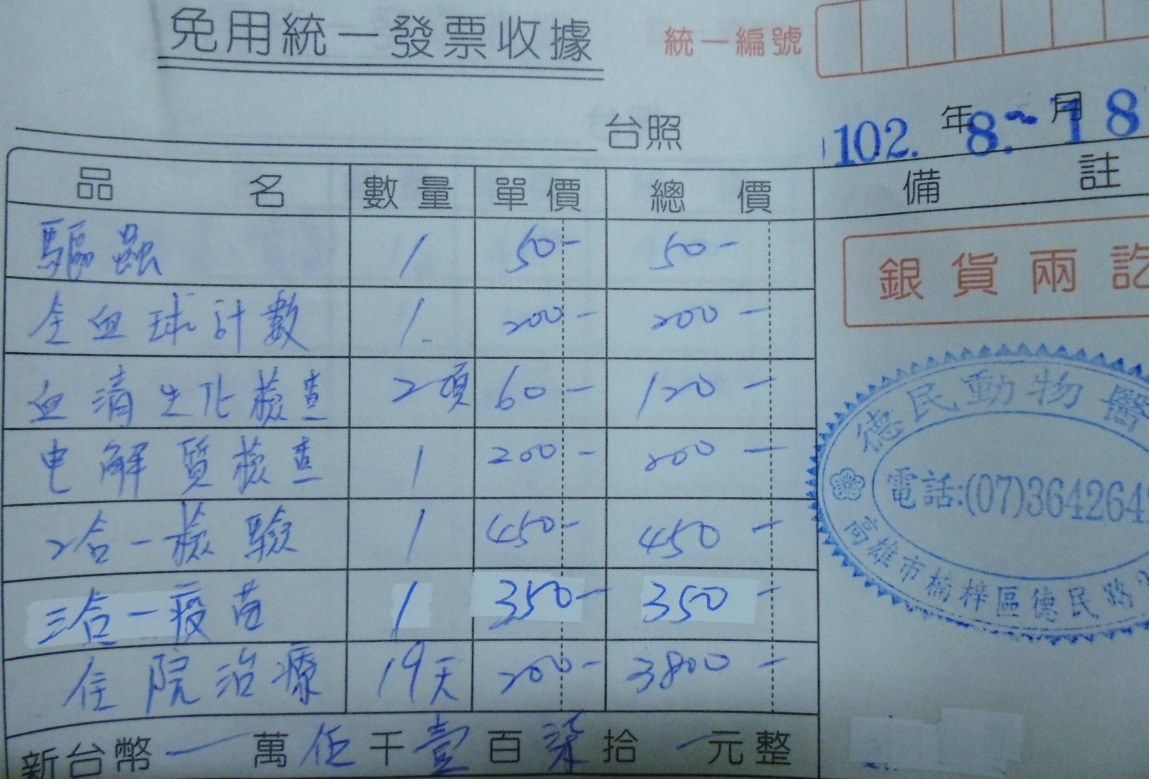 免用統一發票收據 統一編號
102. 年 8. 月 18
台照
品名 數量 單價 總價 備註
驅蟲 1 50- 50-
全血球計數 1. 200- 200-
血清生化檢查 2項 60- 120-
电解質檢查 1 200- 200-
2合一檢驗 1 450- 450-
三合一疫苗 1 350- 350-
住院治療 19天 200- 3800-
新台幣 一 萬 伍 千 壹 百 柒 拾 一 元整
銀貨兩訖
德民動物醫
電話:(07)364264
高雄市楠梓區德民路